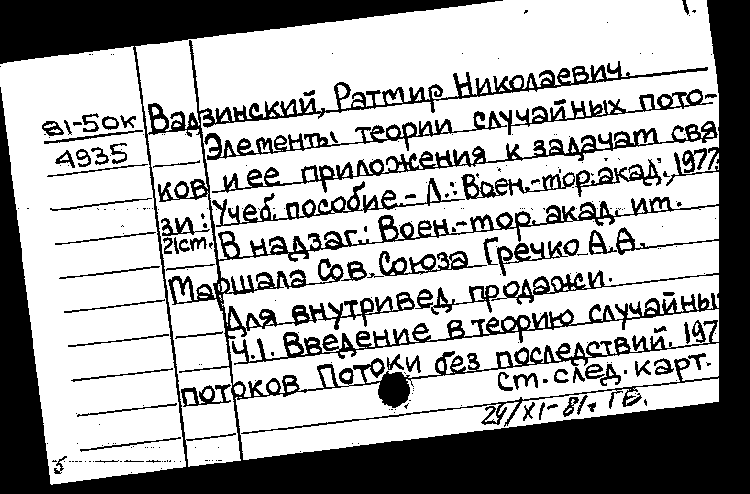 1.
81-50К Вадзинский, Ратмир Николаевич.
4935 Элементы теории случайных пото-
ков и ее приложения к задачам свя
зи: Учеб. пособие. - Л.: Воен.-мор. акад., 1977
21см. В надзаг.: Воен.-мор. акад. им.
Маршала Сов. Союза Гречко А.А.
Для внутривед. продажи.
Ч.1. Введение в теорию случайны
потоков. Потоки без последствий. 197
См. след. карт.
24/XI-81г.